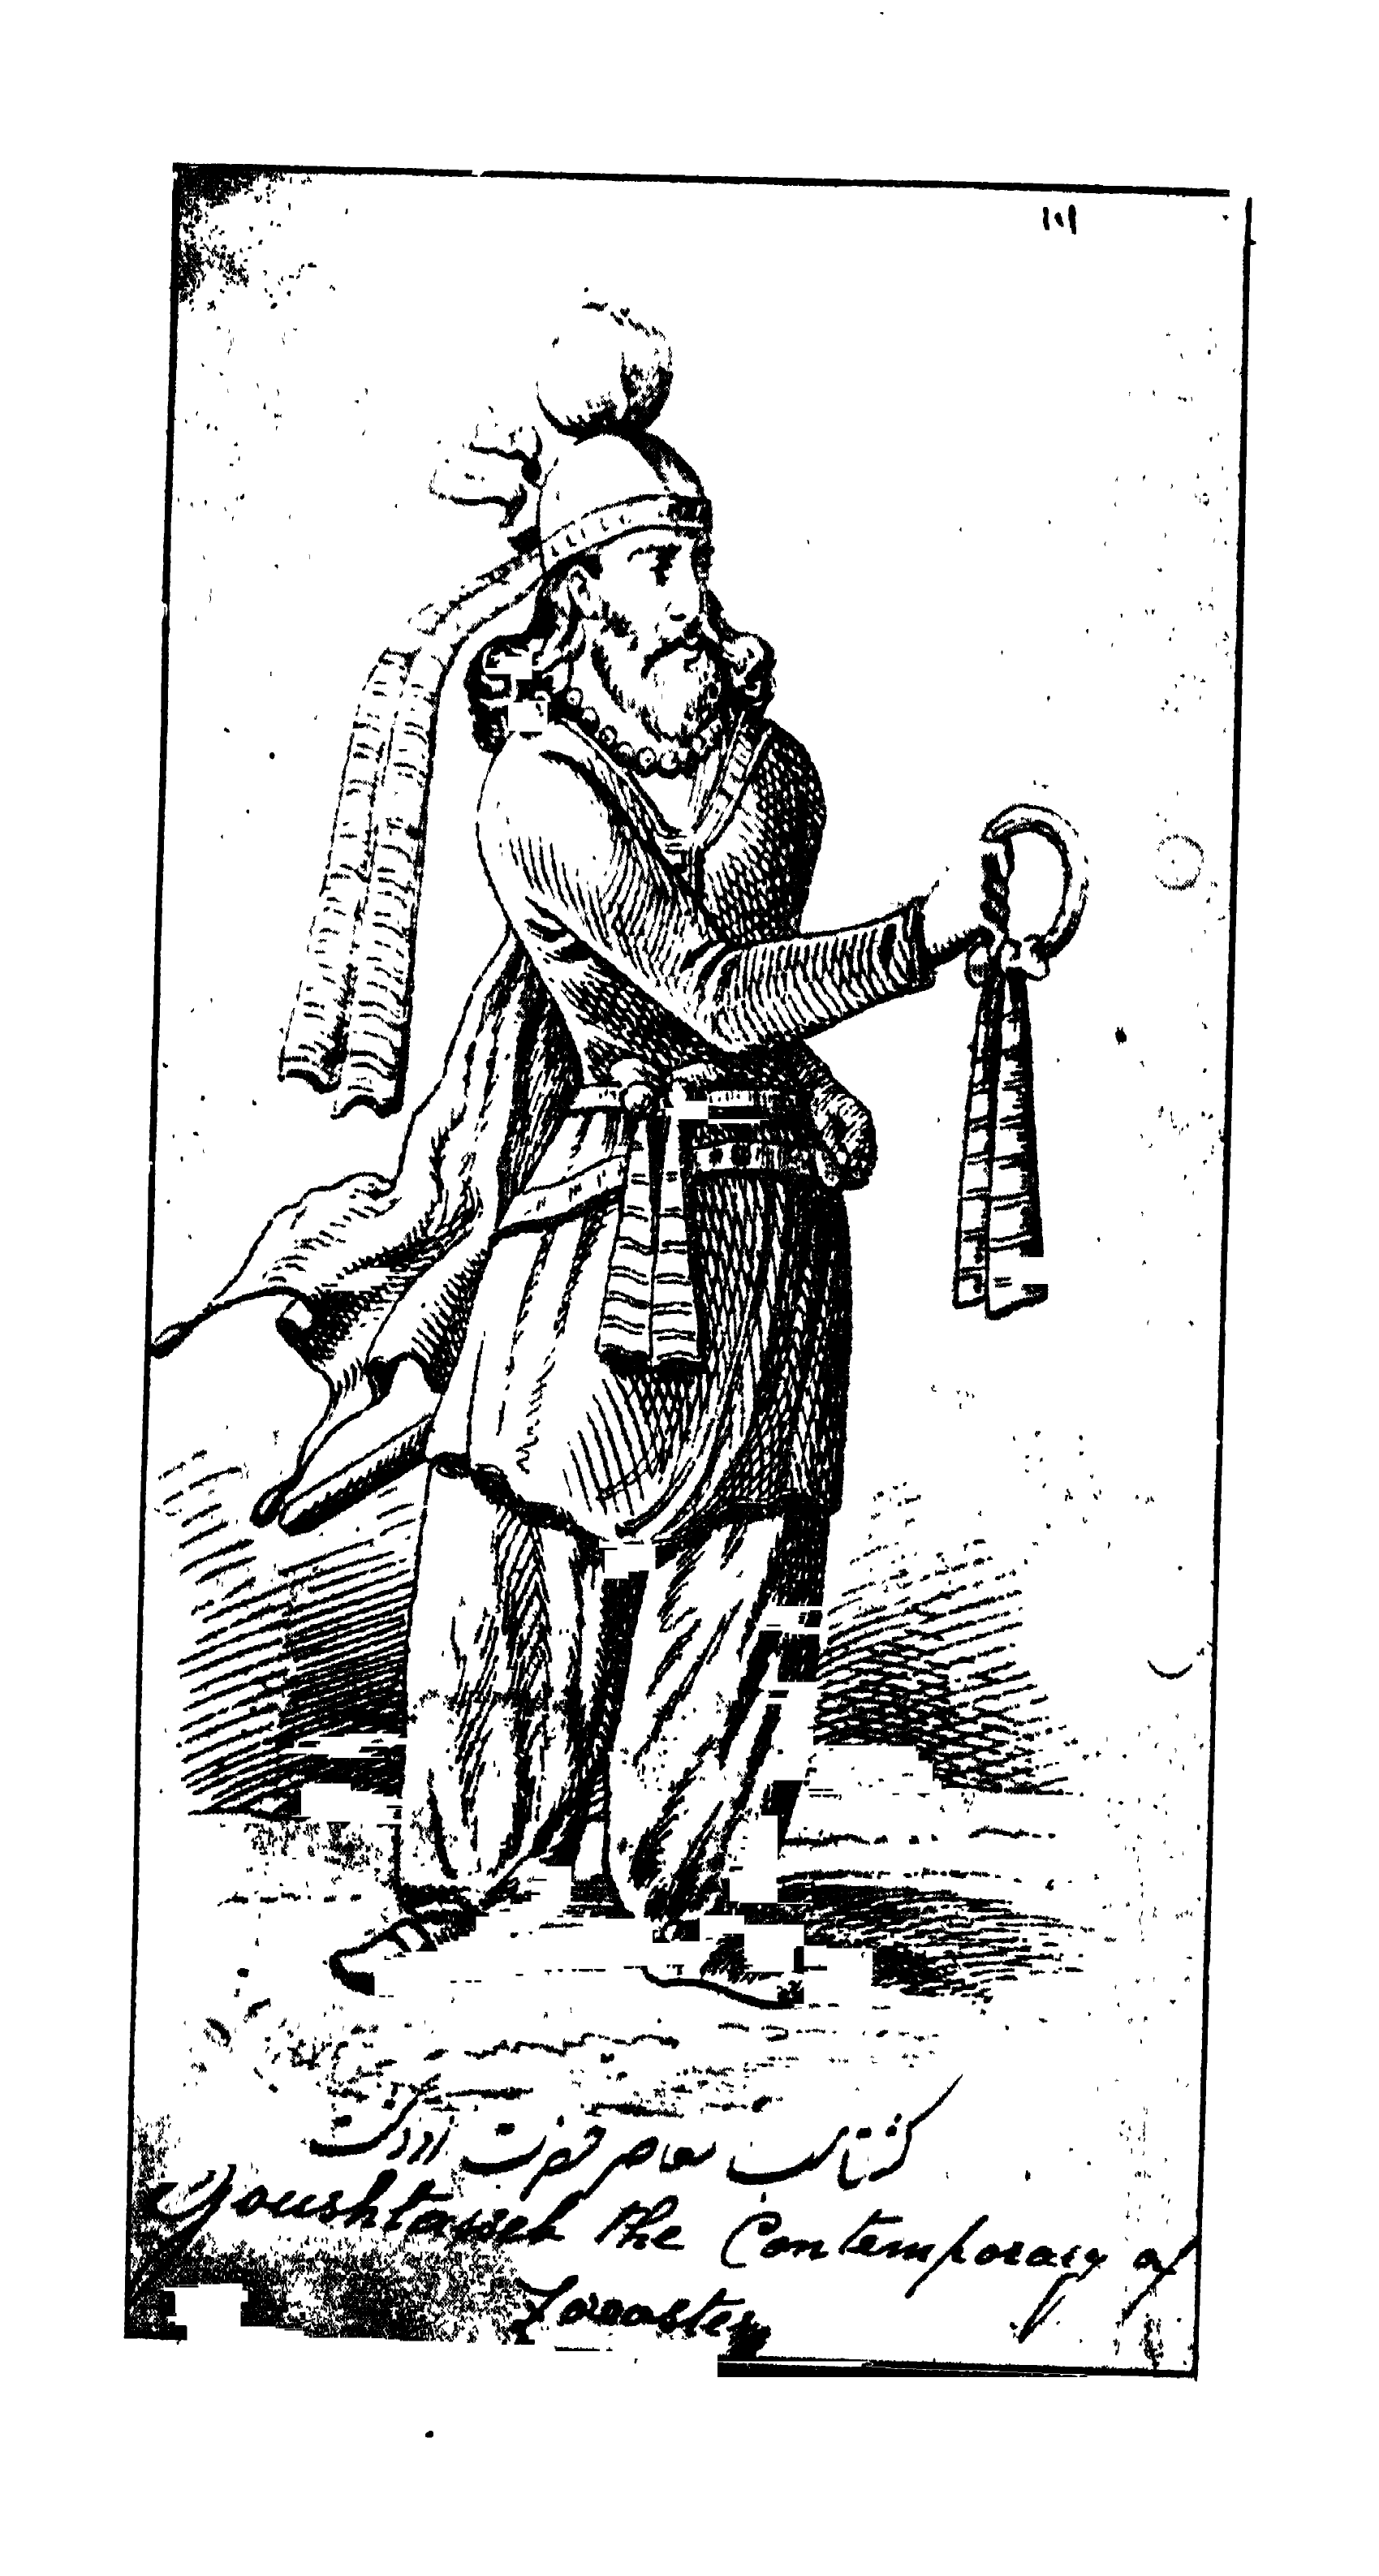 ۱۰۱
گشتاسب معاصر حضرت زردشت
Goushtasseb the Contemporary of
Zoroaster